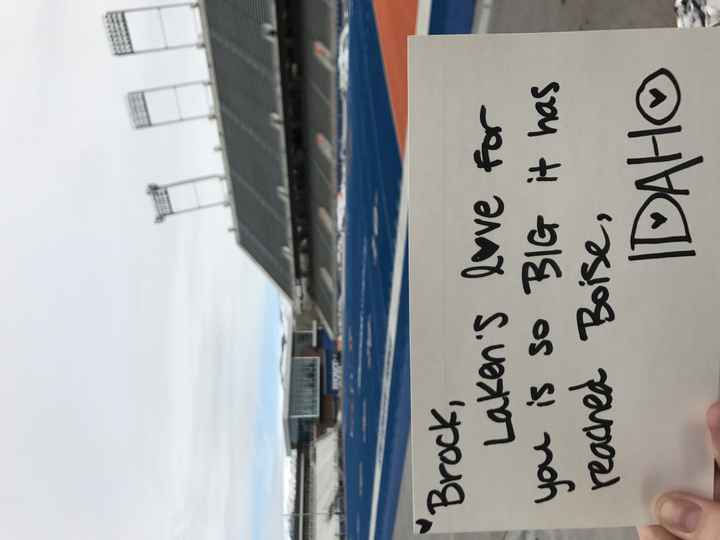 Brock,
Laken's love for
you is so BIG it has
reached Boise,
IDAHO